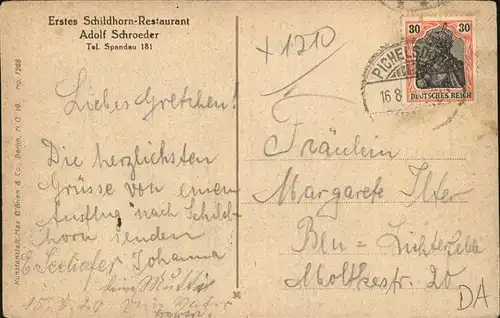 Erstes Schildhorn-Restaurant
Adolf Schroeder
Tel. Spandau 181
+ 1210
30 30
DEUTSCHES REICH
PICHELSD
16.8
Liebes Gretchen!
Die herzlichsten
Grüsse von einem
Ausflug nach Schild-
horn senden
Johanna
dein Mutti
15. 8. 20 dein Vater
Fräulein
Margarete
Bln = Lichterfelde
Moltkestr 20
DA
Kunstanstalt Max O'Brien & Co., Berlin, N O 18. No. 1268